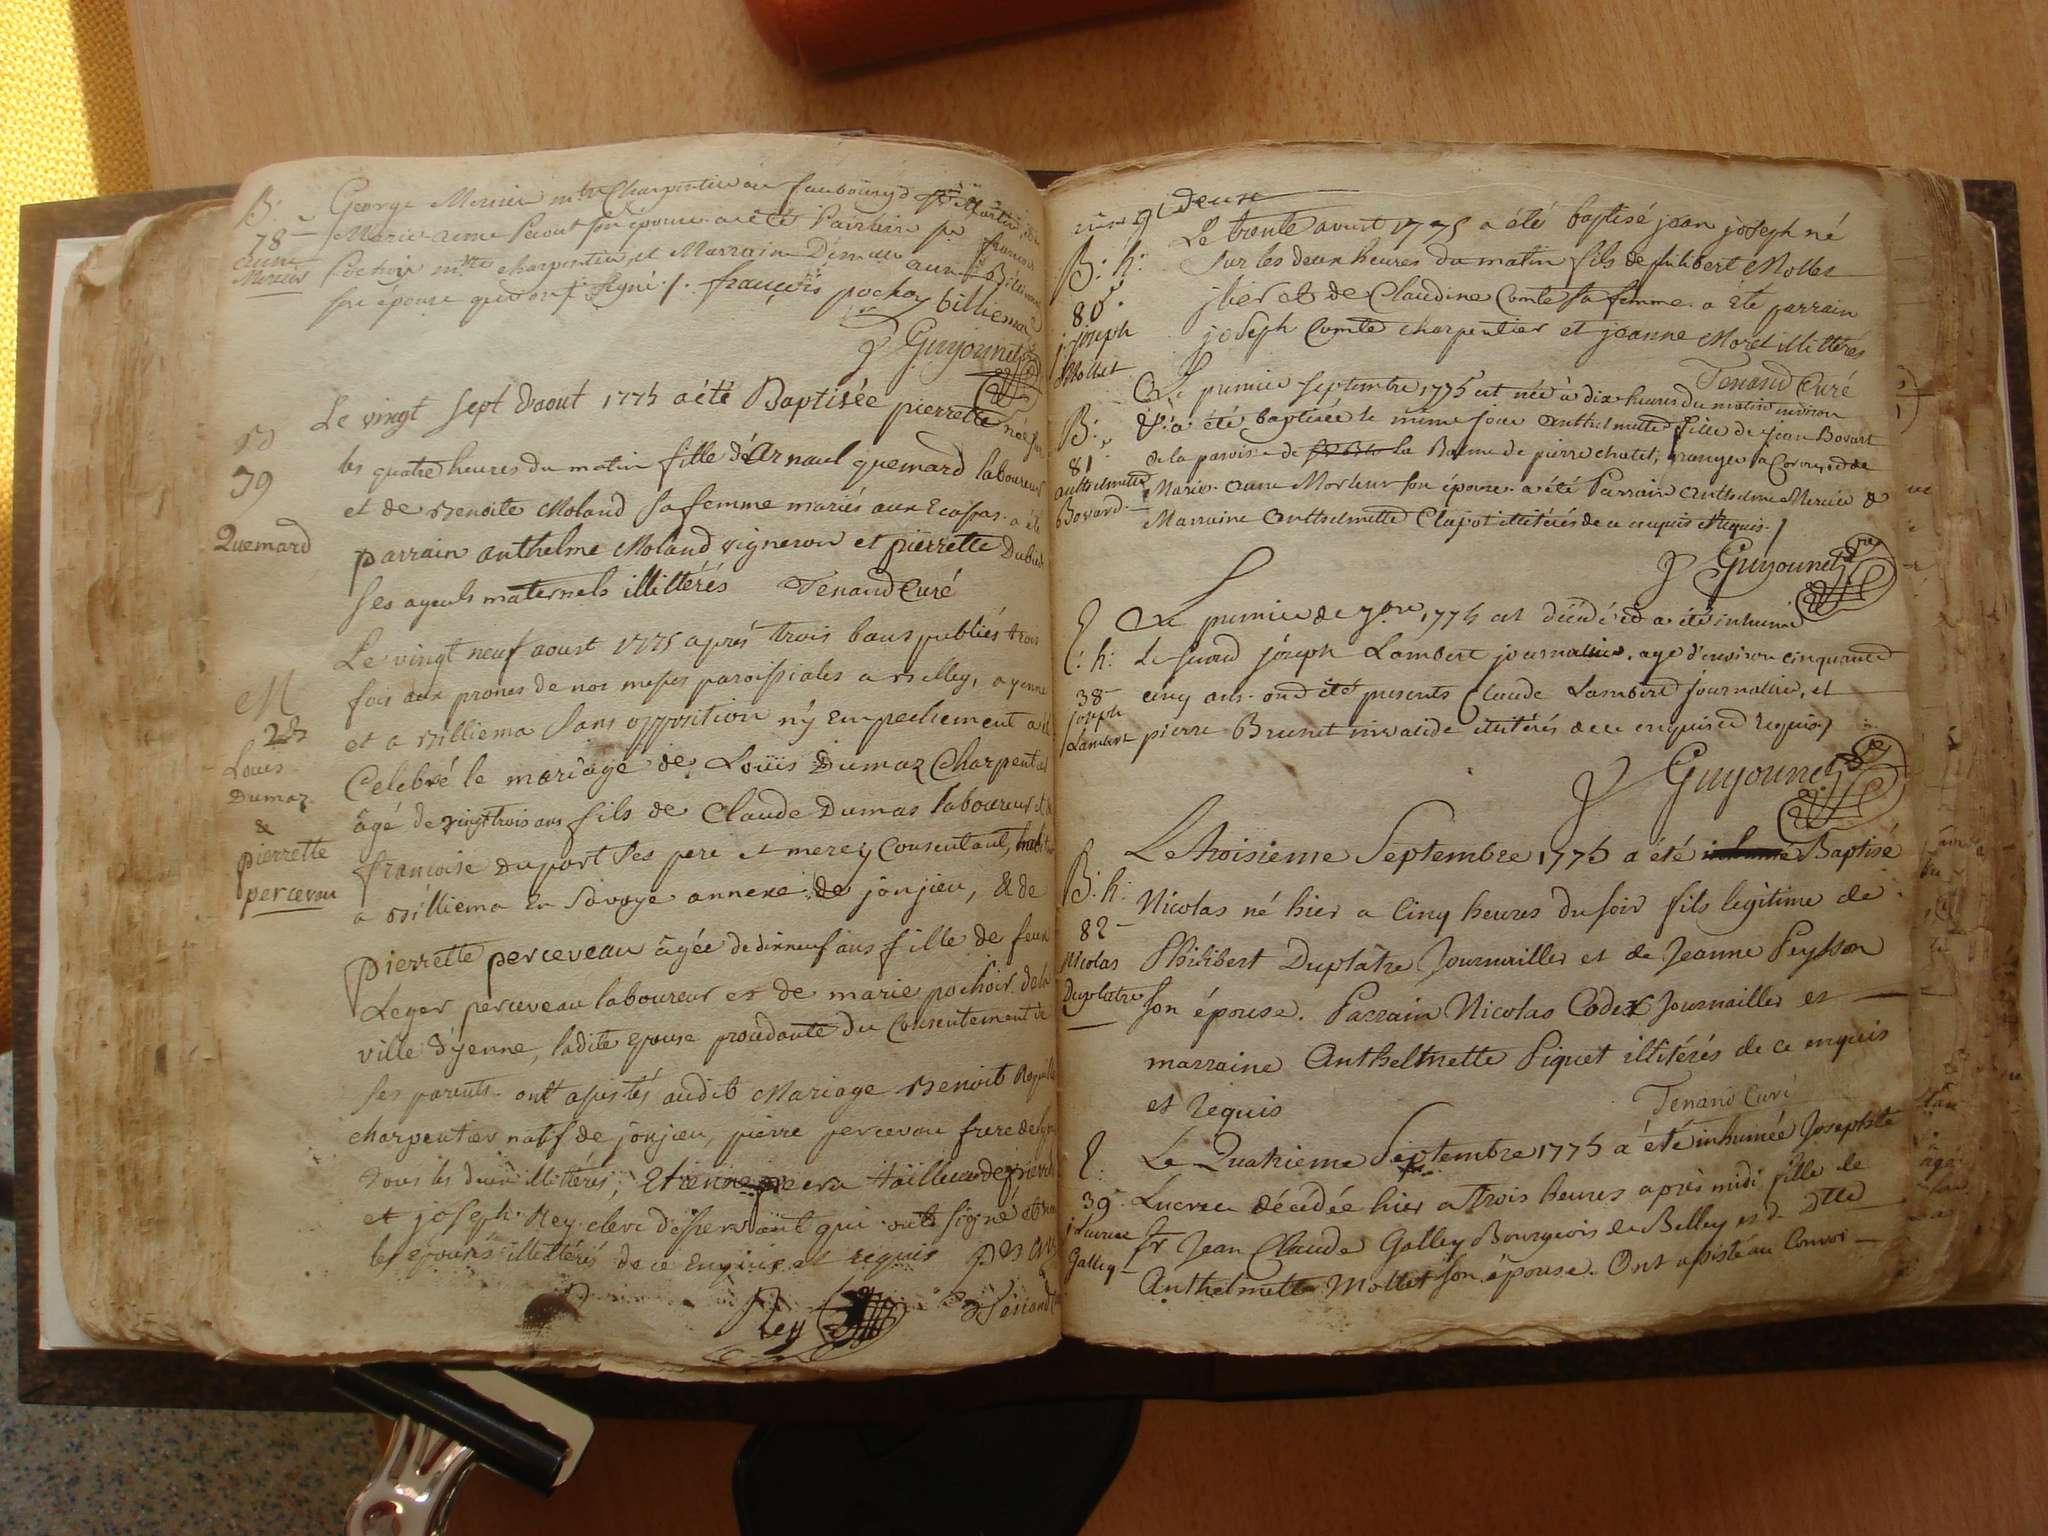 B:
78
anne
Mercier
George Mercier mtre Charpentier au faubourg
Marie anne son épouse a été Parrain françois
Pochoy mtre charpentier, et Marraine
son épouse qui ont signé ./. françois pochoy billiema
Guyonnet
79
Quemard
Le vingt sept d'aout 1775 a été Baptisée pierrette née sur
les quatre heures du matin fille d'Arnaul quemard laboureur
et de Benoite Moland sa femme mariés aux Ecassas a été
parrain anthelme Moland vigneron et pierrette
ses ayeuls maternels illittérés Tenand Curé
M
23
Louis
Dumaz
&
pierrette
percevau
Le vingt neuf aoust 1775 après trois bans publiés trois
fois aux prones de nos messes paroissiales a Belley, a yenne
et a Billiema sans opposition n'y Empechement a été
Celebré le mariage de Loüis Dumaz Charpentier
âgé de vingt trois ans fils de Claude Dumas laboureur et de
françoise Duport ses pere et merey Consentant,
a Billiema en Savoye annexe de jonjieu, & de
pierrette perceveau âgée de dixneuf ans fille de feux
Leger perceveau laboureur et de marie pochoir de la
ville d'yenne, ladite Epouse procedante du Consentement de
ses parents. ont assistés audit Mariage Benoit
charpentier natif de jonjieu, pierre percevau frere de
tous les deux illittérés, Etienne tailleur de pierre
et joseph Rey clerc desservant qui ont signé et non
les epoux illittérés de ce Enquis et requis
Rey
Le trente aoust 1775 a été baptisé jean joseph né
B: h:
80
j: joseph
Mollet
sur les deux heures du matin fils de filibert Mollet
et de Claudine Comte sa femme. a été parrain
joseph Comte charpentier et jeanne Moret illittérés
Tenand Curé
B:
81
anthelmette
Bovard
Le premier septembre 1775 est née à dix heures du matin environ
& a été baptisée le même jour Anthelmette fille de jean Bovart
de la paroisse de la Balme de pierre chatel, granger a et de
Marie anne son épouse. a été Parrain Anthelme Mercier &
Marraine Anthelmette Clapot illitérés de ce enquis & requis.
Guyonnet
E
38
joseph
Lambert
Le premier de 7bre 1775 est décédé et a été inhumé
le second joseph Lambert journalier, agé d'environ cinquante
cinq ans. ont été presents Claude Lambert journalier, et
pierre Brunet invalide illitérés de ce enquis et requis
Guyonnet
B: h:
82
Nicolas
Duplatre
Le troisieme Septembre 1775 a été inhumé Baptisé
Nicolas né hier a Cinq heures du soir fils legitime de
Philibert Duplâtre Journailler et de Jeanne Peysson
son épouse. Parrain Nicolas Codex Journailler et
marraine Anthelmette Piquet illitérés de ce enquis
et requis
Tenand Curé
E:
39
j: Lucrece
Galley
Le Quatrieme Septembre 1775 a été inhumée Josephte
Lucrece décédée hier a trois heures après midi fille de
sr Jean Claude Galley Bourgeois de Belley et de dlle
Anthelmette Mollet son épouse. Ont assisté au Convoi